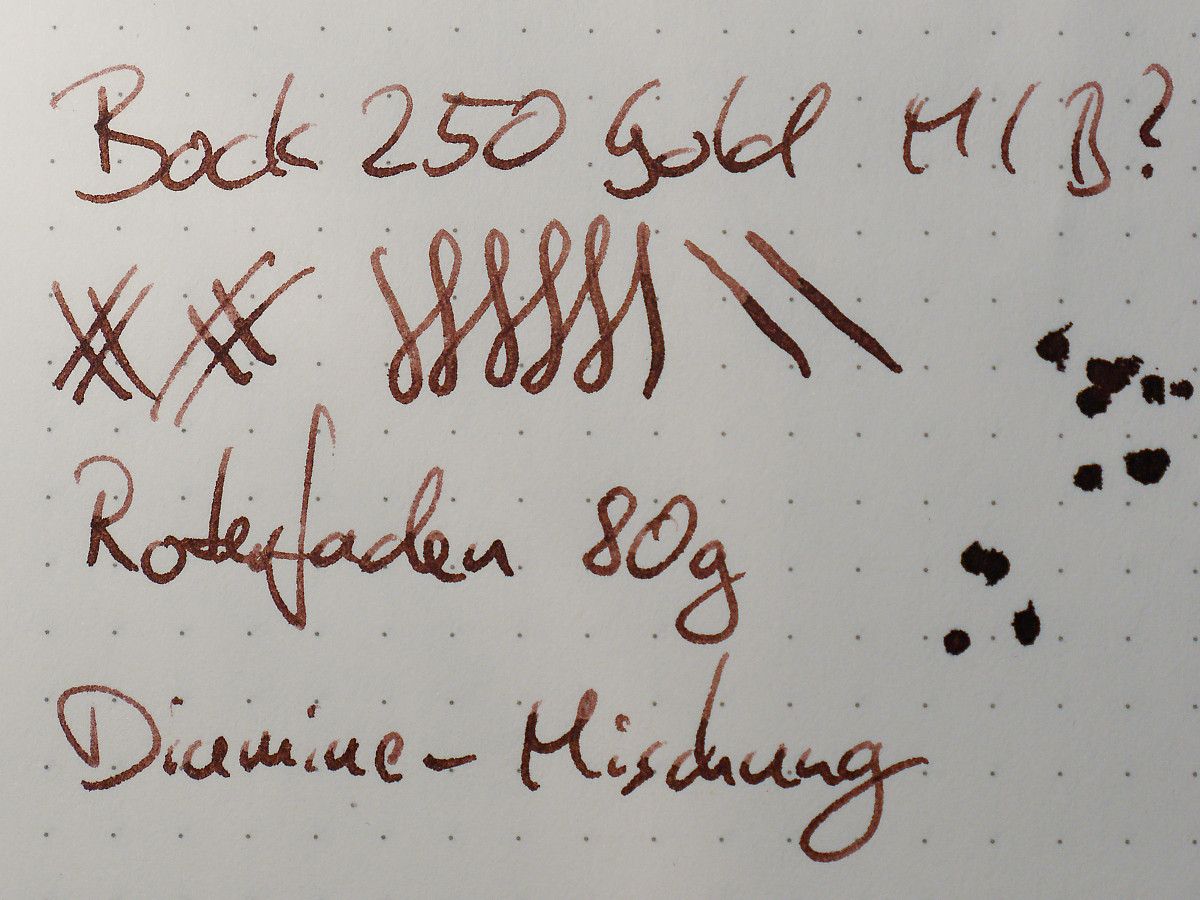 Bock 250 Gold M / B?
Roterfaden 80g
Diamine - Mischung